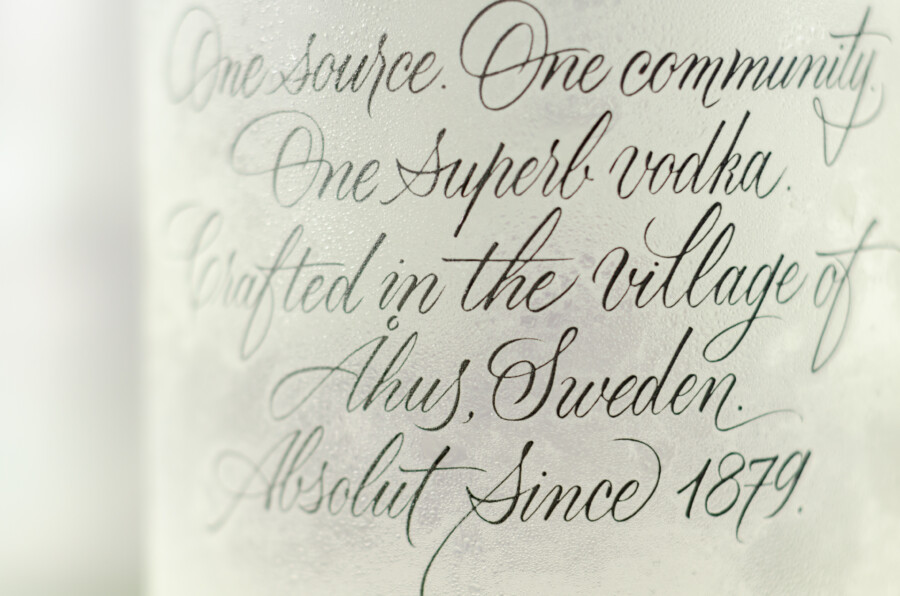 One source. One community.
One superb vodka.
Crafted in the village of
Åhus, Sweden.
Absolut Since 1879.